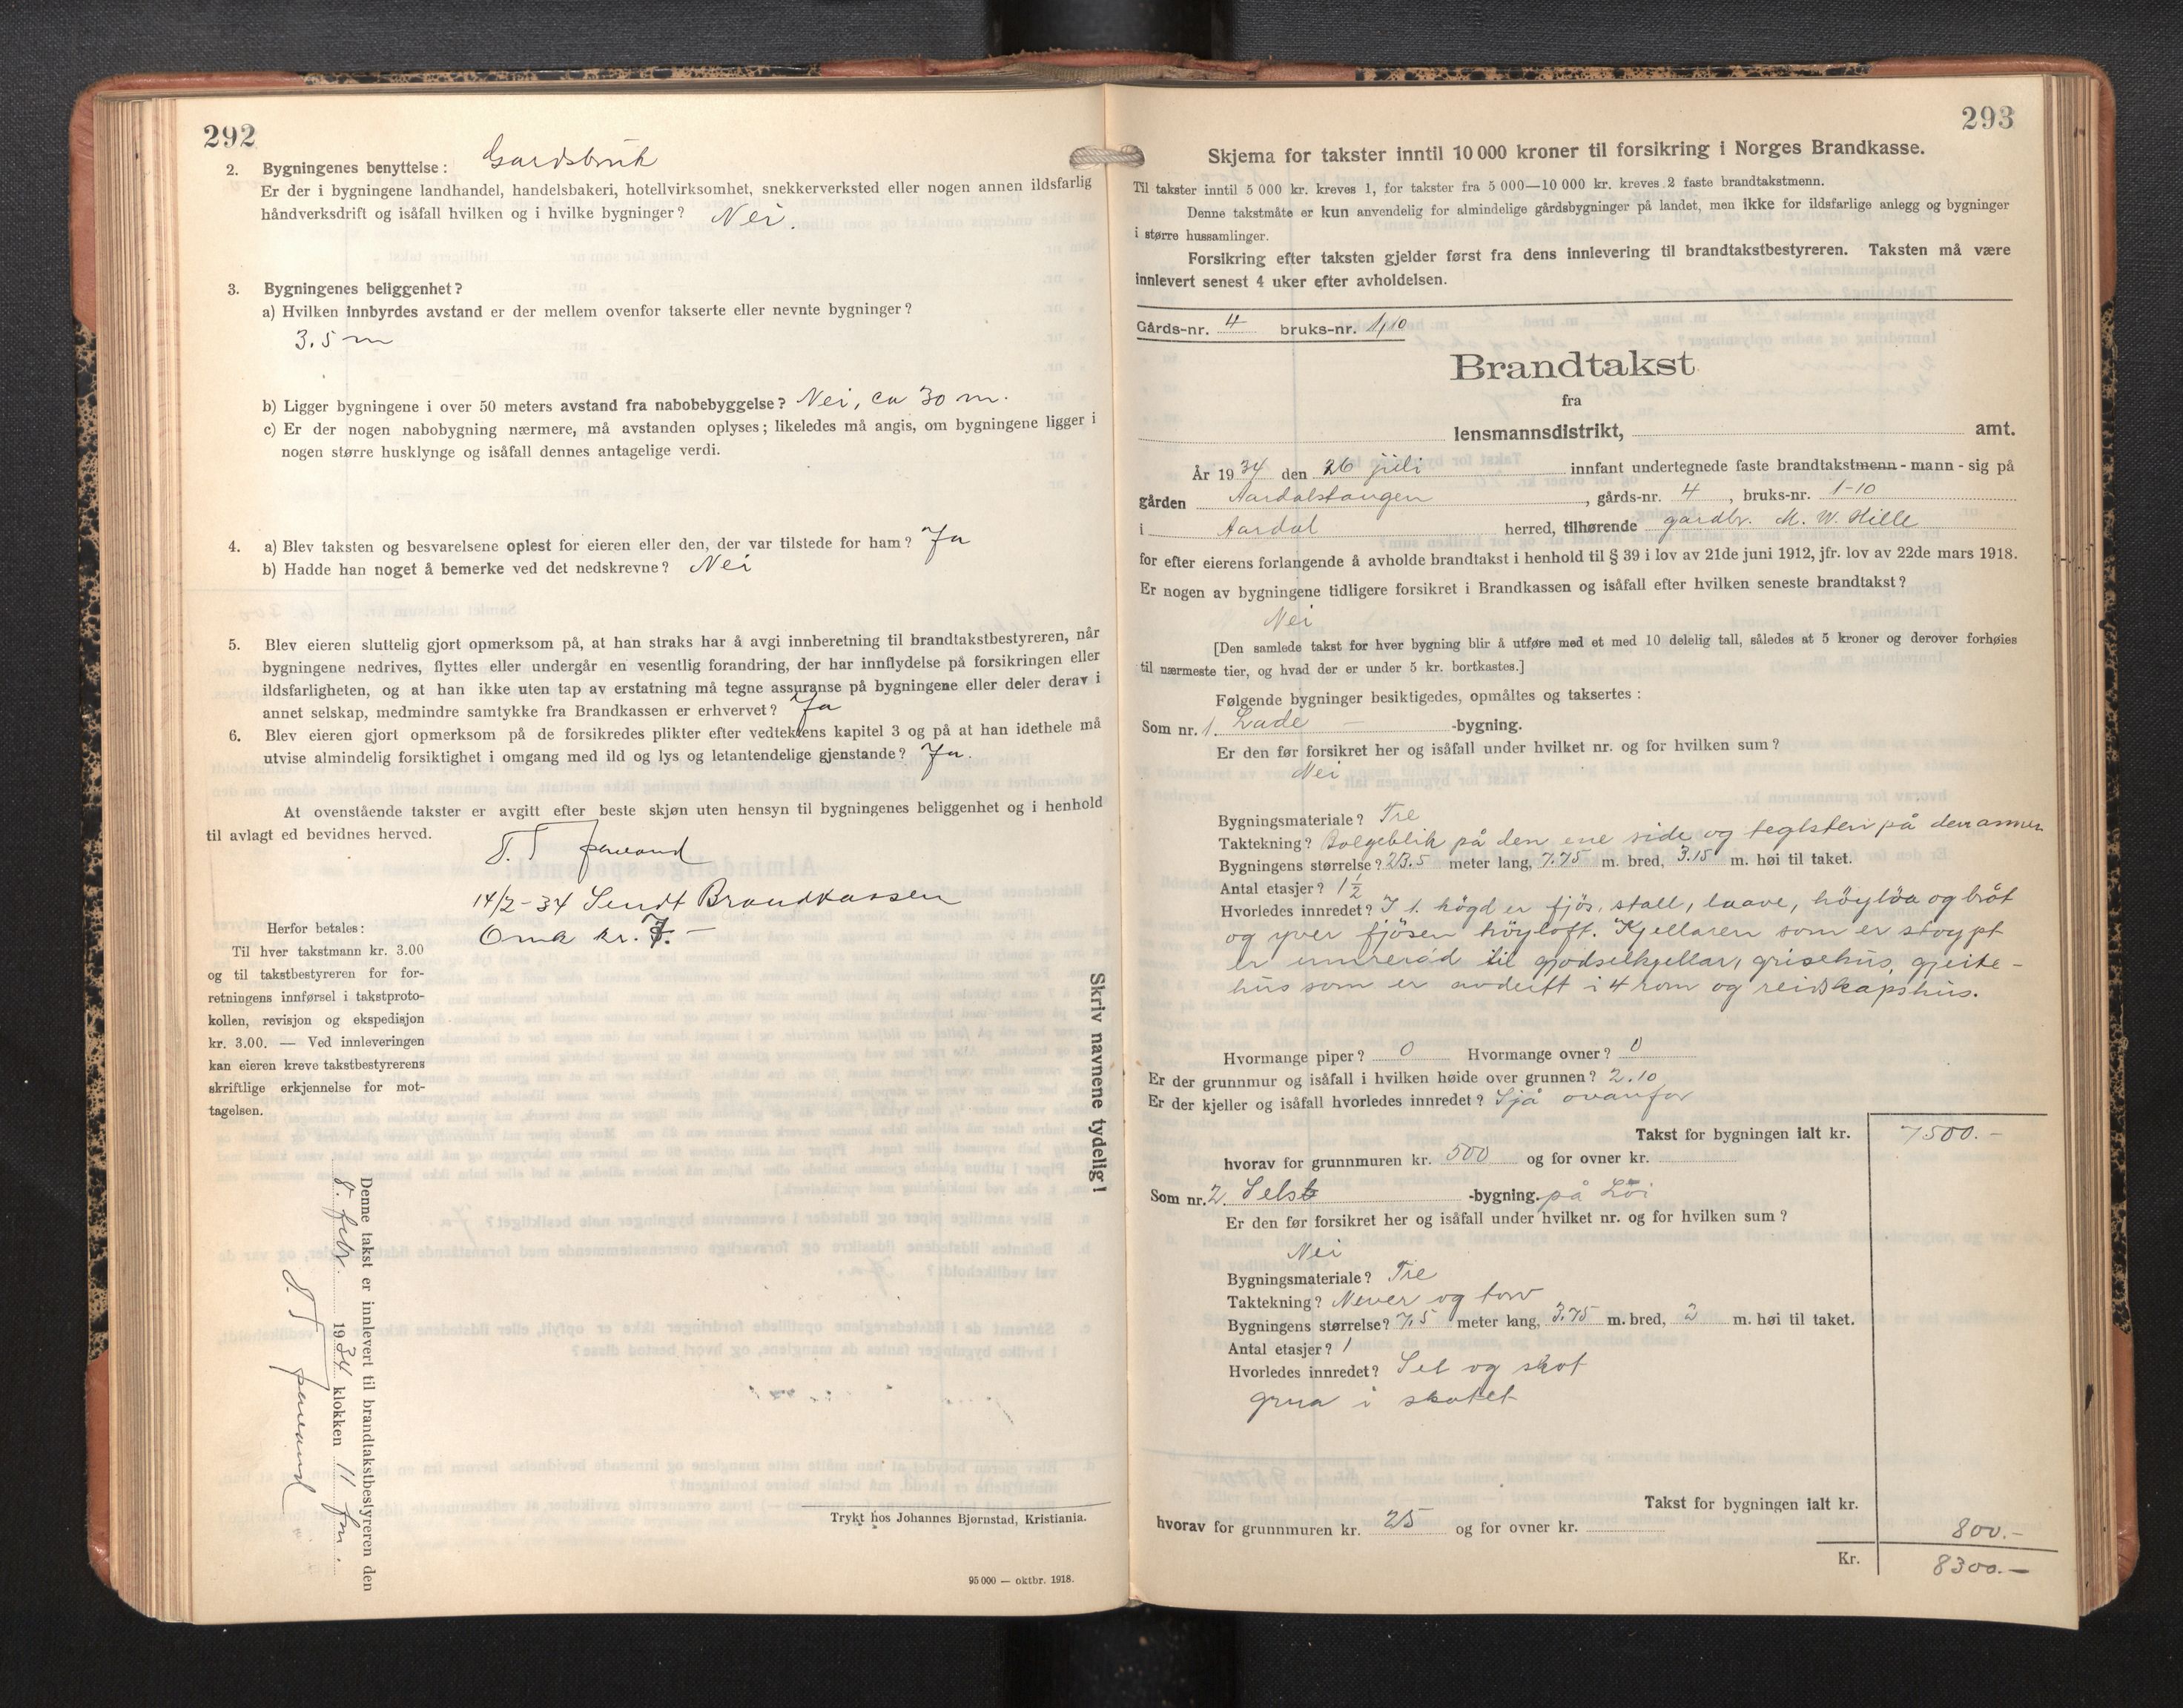 292
2. Bygningenes benyttelse: Gardsbruk
Er der i bygningene landhandel, handelsbakeri, hotellvirksomhet, snekkerverksted eller nogen annen ildsfarlig
håndverksdrift og isåfall hvilken og i hvilke bygninger? Nei.
3. Bygningenes beliggenhet?
a) Hvilken innbyrdes avstand er der mellem ovenfor takserte eller nevnte bygninger?
3.5 m
b) Ligger bygningene i over 50 meters avstand fra nabobebyggelse? Nei, ca 30 m.
c) Er der nogen nabobygning nærmere, må avstanden oplyses; likeledes må angis, om bygningene ligger i
nogen større husklynge og isåfall dennes antagelige verdi.
4. a) Blev taksten og besvarelsene oplest for eieren eller den, der var tilstede for ham? Ja
b) Hadde han noget å bemerke ved det nedskrevne? Nei
5. Blev eieren sluttelig gjort opmerksom på, at han straks har å avgi innberetning til brandtakstbestyreren, når
bygningene nedrives, flyttes eller undergår en vesentlig forandring, der har innflydelse på forsikringen eller
ildsfarligheten, og at han ikke uten tap av erstatning må tegne assuranse på bygningene eller deler derav i
annet selskap, medmindre samtykke fra Brandkassen er erhvervet? Ja
6. Blev eieren gjort opmerksom på de forsikredes plikter efter vedtektens kapitel 3 og på at han idethele må
utvise almindelig forsiktighet i omgang med ild og lys og letantendelige gjenstande? Ja.
At ovenstående takster er avgitt efter beste skjøn uten hensyn til bygningenes beliggenhet og i henhold
til avlagt ed bevidnes herved.
14/2-34 Sendt Brandkassen
Omk kr. 7.-
Herfor betales:
Til hver takstmann kr. 3.00
og til takstbestyreren for for-
retningens innførsel i takstproto-
kollen, revisjon og ekspedisjon
kr. 3.00. — Ved innleveringen
kan eieren kreve takstbestyrerens
skriftlige erkjennelse for mot-
tagelsen.
Skriv navnene tydelig!
Denne takst er innlevert til brandtakstbestyreren den
8. febr. 1934 klokken 11 fm.
Trykt hos Johannes Bjørnstad, Kristiania.
95 000 — oktbr. 1918.
293
Skjema for takster inntil 10 000 kroner til forsikring i Norges Brandkasse.
Til takster inntil 5 000 kr. kreves 1, for takster fra 5 000—10 000 kr. kreves 2 faste brandtakstmenn.
Denne takstmåte er kun anvendelig for almindelige gårdsbygninger på landet, men ikke for ildsfarlige anlegg og bygninger
i større hussamlinger.
Forsikring efter taksten gjelder først fra dens innlevering til brandtakstbestyreren. Taksten må være
innlevert senest 4 uker efter avholdelsen.
Gårds-nr. 4 bruks-nr. 1,10
Brandtakst
fra
lensmannsdistrikt, amt.
År 1934 den 26 juli innfant undertegnede faste brandtakstmenn - mann - sig på
gården Aardalstangen, gårds-nr. 4, bruks-nr. 1-10
i Aardal herred, tilhørende gardbr. M. W. Hille
for efter eierens forlangende å avholde brandtakst i henhold til § 39 i lov av 21de juni 1912, jfr. lov av 22de mars 1918.
Er nogen av bygningene tidligere forsikret i Brandkassen og isåfall efter hvilken seneste brandtakst?
Nei
[Den samlede takst for hver bygning blir å utføre med et med 10 delelig tall, således at 5 kroner og derover forhøies
til nærmeste tier, og hvad der er under 5 kr. bortkastes.]
Følgende bygninger besiktigedes, opmåltes og taksertes:
Som nr. 1. Lade - -bygning.
Er den før forsikret her og isåfall under hvilket nr. og for hvilken sum?
Nei
Bygningsmateriale? Tre
Taktekning? Bolgeblik på den ene side og teglstein på den annen
Bygningens størrelse? 23.5 meter lang, 7.75 m. bred, 3.15 m. høi til taket.
Antal etasjer? 1 1/2
Hvorledes innredet? I 1. högd er fjös, stall, laave, höyløa og bråt
og yver fjösen höyloft. Kjellaren som er stoypt
er innreiød til gjødselkjellar, grisehus, gjeite-
hus som er avdeilt i 4 rom og reidskapshus.
Hvormange piper? 0 Hvormange ovner? 0
Er der grunnmur og isåfall i hvilken høide over grunnen? 2.10
Er der kjeller og isåfall hvorledes innredet? Sjå ovanfor
Takst for bygningen ialt kr. 7500.-
hvorav for grunnmuren kr. 500 og for ovner kr.
Som nr. 2. Sels -bygning. på Löi
Er den før forsikret her og isåfall under hvilket nr. og for hvilken sum?
Nei
Bygningsmateriale? Tre
Taktekning? Never og torv
Bygningens størrelse? 7.5 meter lang, 3.75 m. bred, 2 m. høi til taket.
Antal etasjer? 1
Hvorledes innredet? Sel og skot
grua i skotet
Takst for bygningen ialt kr.
hvorav for grunnmuren kr. 25 og for ovner kr. 800.-
Kr. 8300.-